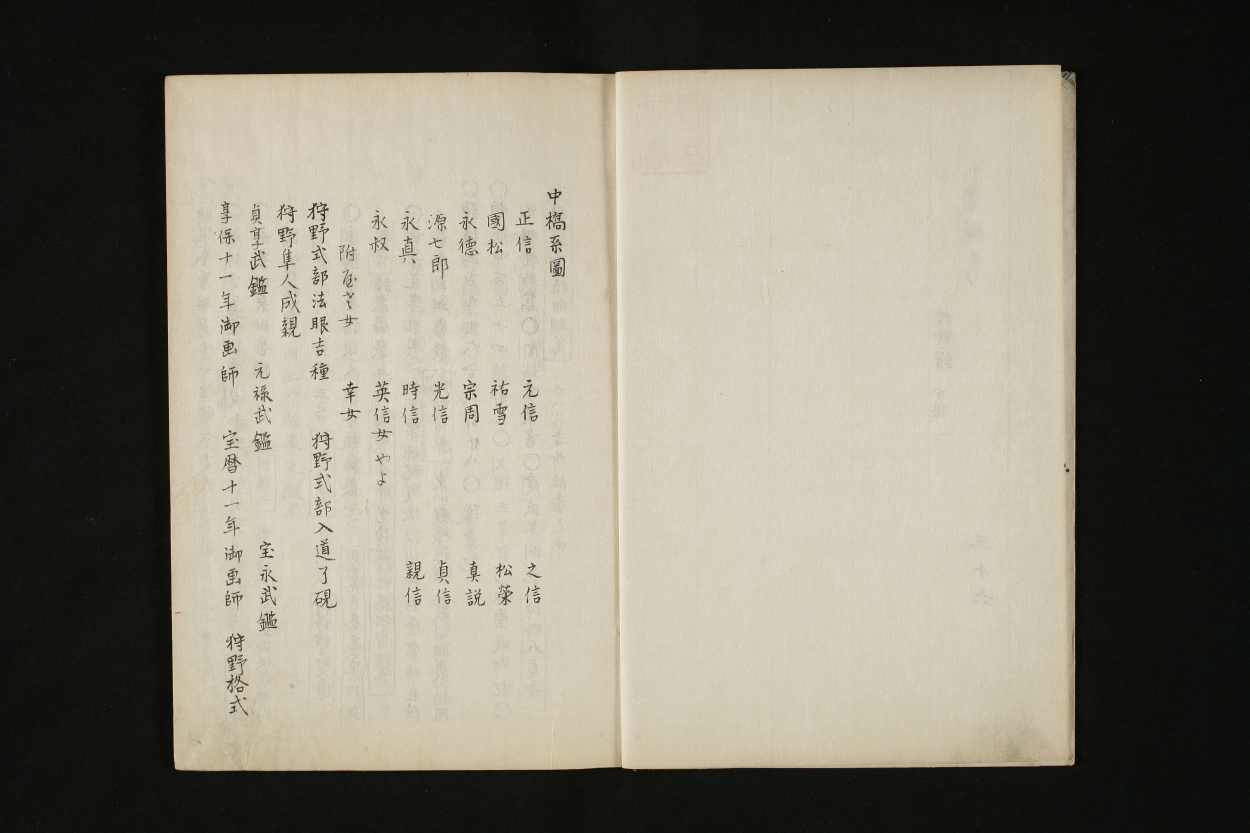 中橋系圖
正信 元信 之信
國松 祐雪 松榮
永德 宗周 真説
源七郎 光信 貞信
永真 時信 親信
永叔 英信女やよ
附 女 幸女
狩野式部法眼吉種 狩野式部入道了硯
狩野隼人成親
貞享武鑑 元禄武鑑 宝永武鑑
享保十一年御画師 宝暦十一年御画師 狩野格式